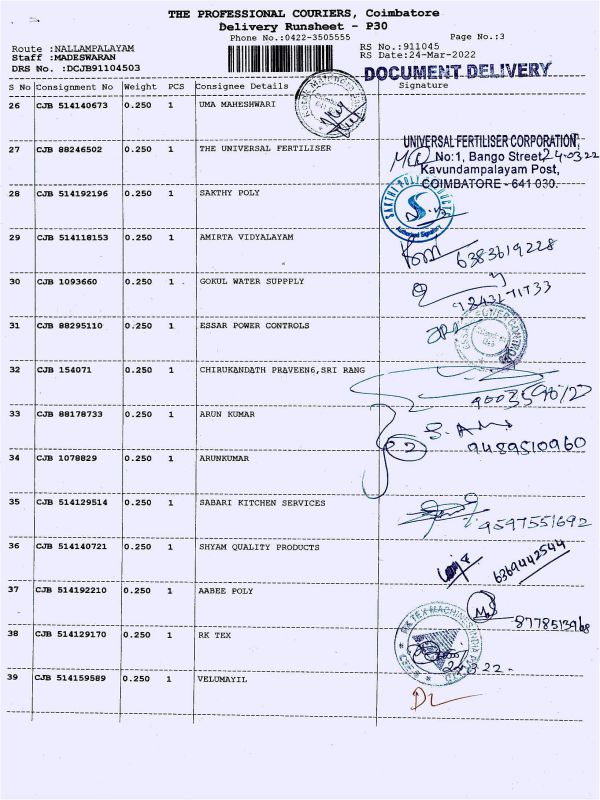 THE PROFESSIONAL COURIERS, Coimbatore
Delivery Runsheet - P30
Phone No.:0422-3505555 Page No.:3
Route :NALLAMPALAYAM RS No.:911045
Staff :MADESWARAN RS Date:24-Mar-2022
DRS No. :DCJB91104503 DOCUMENT DELIVERY
S No Consignment No Weight PCS Consignee Details Signature
26 CJB 514140673 0.250 1 UMA MAHESHWARI
UNIVERSAL FERTILISER CORPORATION,
27 CJB 88246502 0.250 1 THE UNIVERSAL FERTILISER No:1, Bango Street, 24-03-22
Kavundampalayam Post,
COIMBATORE - 641 030.
28 CJB 514192196 0.250 1 SAKTHY POLY
SAKTHI POLY PRODUCTS
S
Authorised Signatory
29 CJB 514118153 0.250 1 AMIRTA VIDYALAYAM 6383619228
30 CJB 1093660 0.250 1 GOKUL WATER SUPPPLY
31 CJB 88295110 0.250 1 ESSAR POWER CONTROLS
ESSAR POWER CONTROLS
32 CJB 154071 0.250 1 CHIRUKANDATH PRAVEEN6,SRI RANG
33 CJB 88178733 0.250 1 ARUN KUMAR
2 9489510960
34 CJB 1078829 0.250 1 ARUNKUMAR
35 CJB 514129514 0.250 1 SABARI KITCHEN SERVICES 9597551692
36 CJB 514140721 0.250 1 SHYAM QUALITY PRODUCTS 6369442544
37 CJB 514192210 0.250 1 AABEE POLY
38 CJB 514129170 0.250 1 RK TEX
RK TEX MACHINES INDIA
39 CJB 514159589 0.250 1 VELUMAYIL